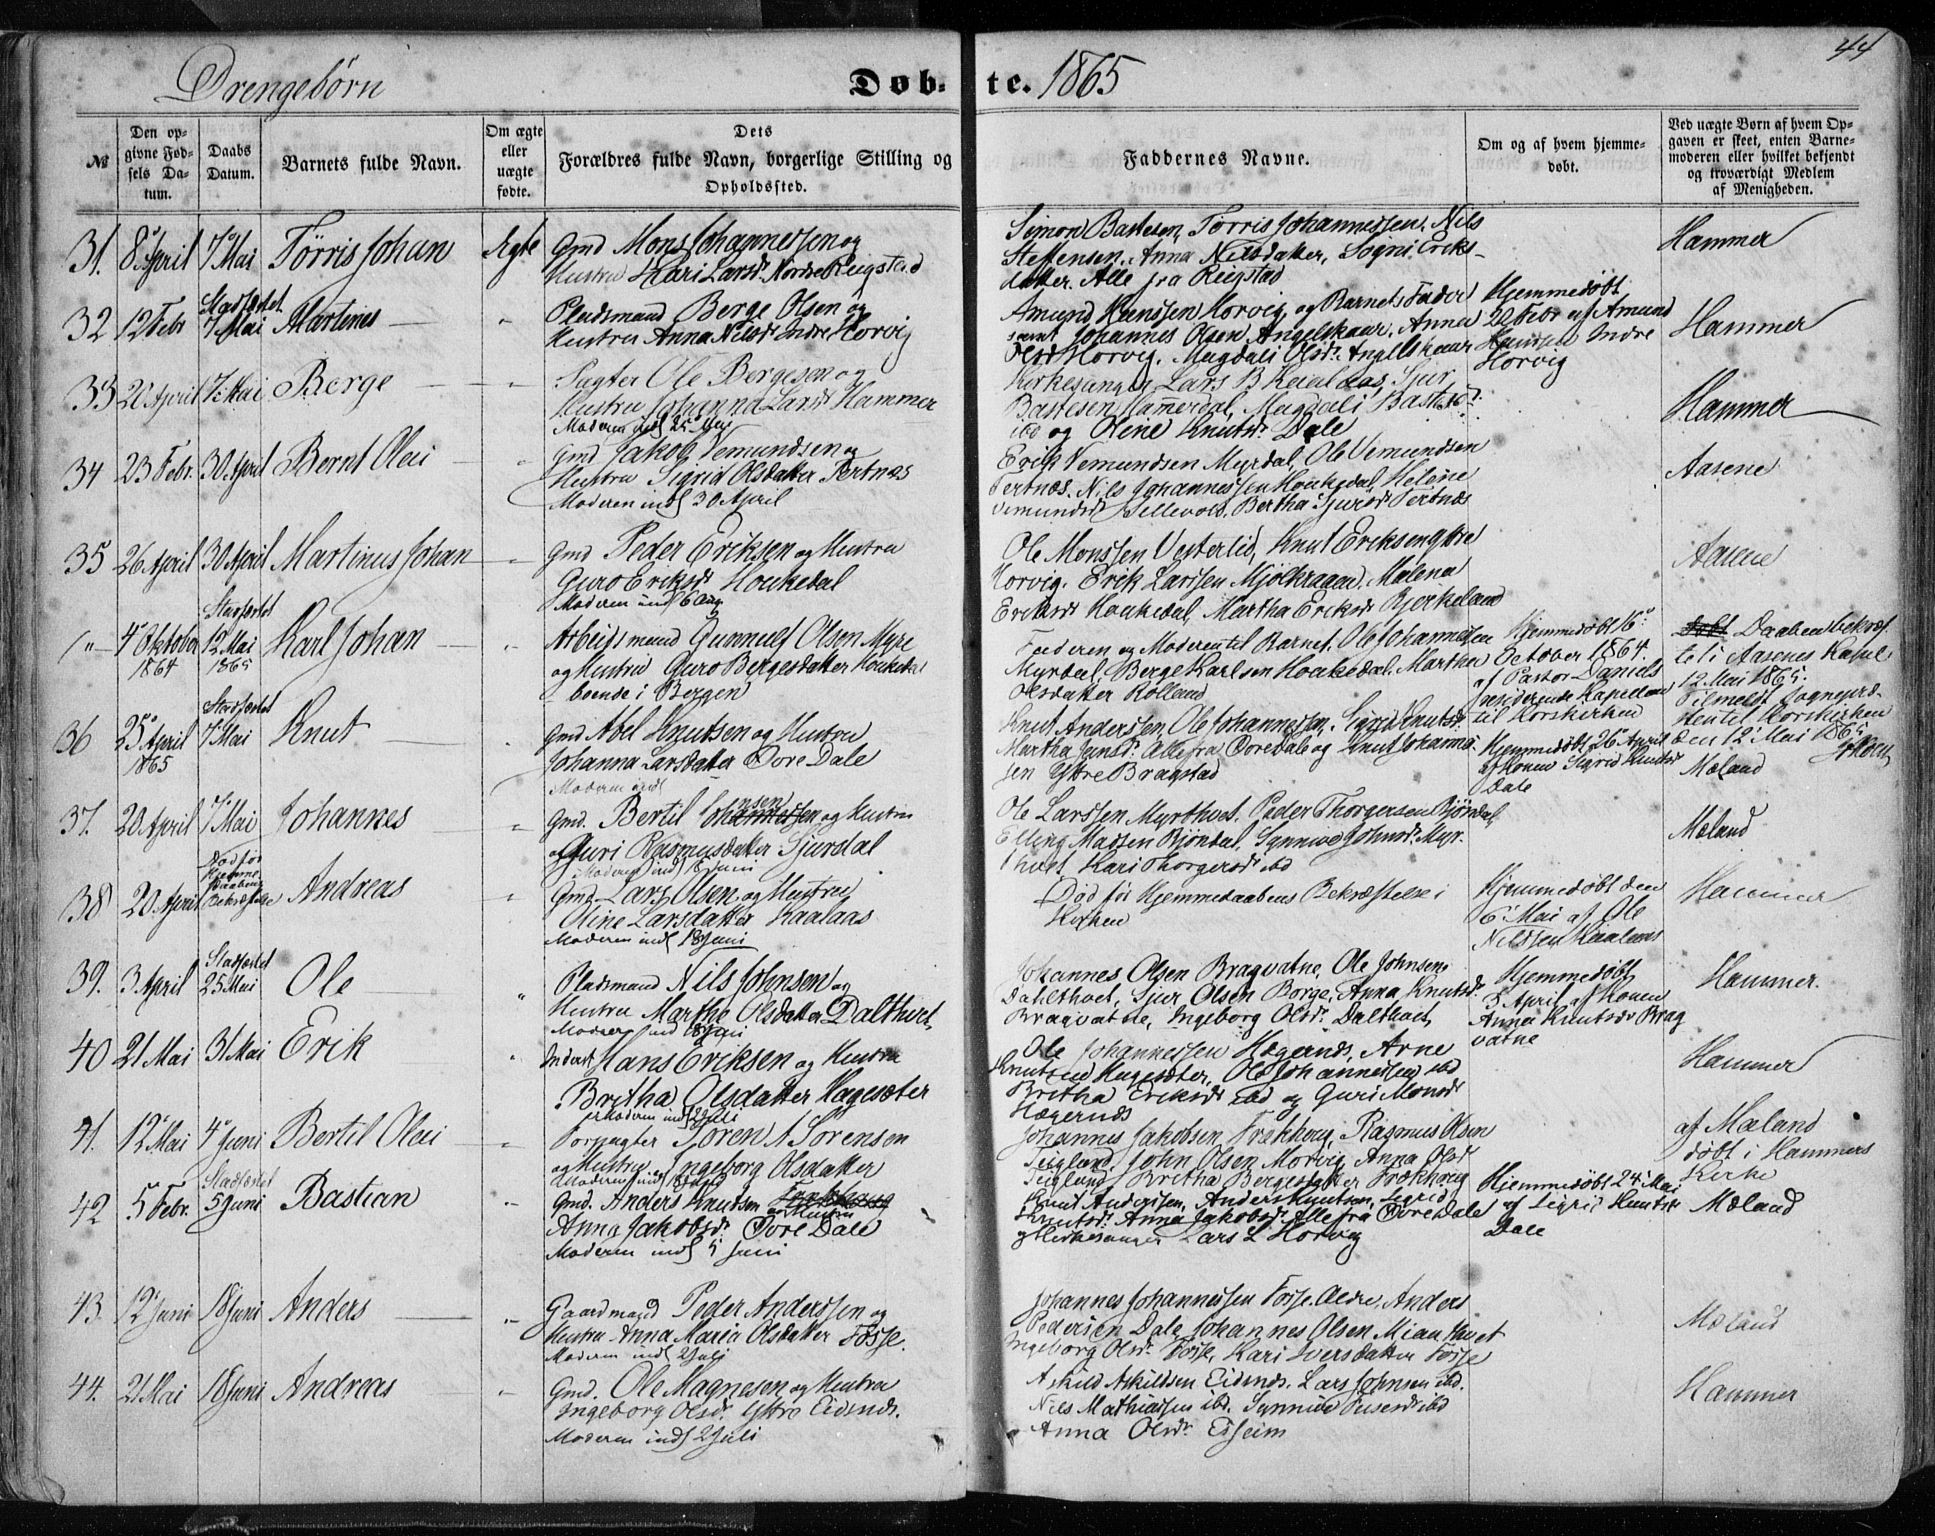 44
Drengebørn
Døb-
te. 1865
№
Den op-
givne Fød-
sels Da-
tum.
Daabs
Datum.
Barnets fulde Navn.
Om ægte
eller
uægte
fødte.
Dets
Forældres fulde Navn, borgerlige Stilling og
Opholdssted.
Faddernes Navne.
Om og af hvem hjemme-
døbt.
Ved uægte Børn af hvem Op-
gaven er skeet, enten Barne-
moderen eller hvilket bekjendt
og troværdigt Medlem
af Menigheden.
31. 8 April 7 Mai Tørris Johan Ægte
Gmd Mons Johannessen og
Hustru Kari Larsd. Nordre Reigstad
Simon Bastesen, Tørris Johannessen, Nils
Steffensen, Anna Nilsdatter, Sogni Eriks-
datter. Alle fra Reigstad
Hammer
32 12 Febr Stadfæstet
7 Mai Martines "
Pladsmand Berge Olsen og
Hustru Anna Nilsdr Indre Horvig
Amund Knutssen Horvig og Barnets Fader
samt Johannes Olsen Angelskaar, Anna
Olsdr Horvig, Magdali Olsdr. Angelskaar
Hjemmedøbt
20 Febr af Amund
Knutssen Indre
Horvig
Hammer
33 20 April 7 Mai Berge "
Ole Bergesen og
Hustru Johanna Larsdr Hammer
Moderen indl 25 Mai
Kirkesanger Lars B Kaalaas, Sjur
Bastesen Hammerdal, Magdali Bastesdr.
ibd og Olene Knutsdr. Dale
Hammer
34 23 Febr. 30 April Bernt Olai "
Gmd Jakob Vemundsen og
Hustru Sigrid Olsdatter Tertnæs
Moderen indl 30 April
Erik Vemundsen Myrdal, Ole Vemundsen
Tertnæs, Nils Johannessen Houkedal, Helene
Vemundsdr Sellevold, Bertha Sjursdr Tertnæs
Aasene
35 26 April 30 April Martinus Johan "
Gmd. Peder Eriksen og Hustru
Guro Eriksdr Houkedal
Moderen indl 6 Aug
Ole Monssen Vesterlid, Knut Eriksen Ytre
Horvig, Erik Larssen Mjølkraaen, Malena
Eriksdr Houkedal, Martha Eriksdr Bjerkeland
Aasene
" 4 Oktober
1864
Stadfæstet
12 Mai
1865
Karl Johan "
Arbeidsmand Gunnulf Olsen Myre
og Hustru Guro Bergesdatter Houkedal
boende i Bergen
Faderen og Moderen til Barnet, Ole Johannessen
Myrdal, Berge Karlsen Houkedal, Martha
Olsdatter Rolland
Hjemmedøbt 16
October 1864
af Pastor Daniels
residerende Kapellan
til Korskirken
Døbt Daaben bekræf-
tet i Aasenes Kapel
12 Mai 1865.
Tilmeldt Sognepræ-
sten til Korskirken
den 12 Mai 1865
36 25 April
1865
Stadfæstet
7 Mai Knut "
Gmd. Abel Knutsen og Hustru
Johanna Larsdatter Øvre Dale
Moderen indl
Knut Anderssen, Ole Johannessen, Sigrid Knutsdr.
Martha Jansdr. Alle fra Øvredale og Knut Johannes-
sen Ytre Bragstad
Hjemmedøbt 26 April
af Konen Sigrid Knutsdr
Dale
Mæland
37. 20 April 7 Mai Johannes "
Gmd. Bertil Johannessen og Hustru
Guri Rasmusdatter Sjurstal
Moderen indl 18 Juni
Ole Larssen Myrthvet, Peder Thorgersen Bjøndal,
Elling Madsen Bjøndal, Synneve Johnsdr. Myr-
thvet, Kari Thorgersdr ibd
Mæland
38 20 April
Død før
Hjemme
Daabens
Bekræftelse Andreas "
Gmd. Lars Olsen og Hustru
Oline Larsdatter Kaalaas
Moderen indl 18 Juni
Død før Hjemmedaabens Bekræftelse i
Kirken
Hjemmedøbt den
6 Mai af Ole
Nilssen Kaalaas
Hammer
39. 3 April Stadfæstet
25 Mai Ole "
Pladsmand Nils Johnsen og
Hustru Marthe Olsdatter Dalthvet
Moderen indl 18 Juni
Johannes Olsen Bragvatne, Ole Johnsen
Dalethvet, Sjur Olsen Borge, Anna Knutsdr.
Bragvatne, Ingeborg Olsdr. Dalthvet
Hjemmedøbt
5 April af Konen
Anna Knutsdr Brag
vatne
Hammer.
40 21 Mai 31 Mai Erik "
Inderst Hans Eriksen og Hustru
Britha Olsdatter Hagesæter
Moderen indl 2 Juli
Ole Johannessen Hægernæs, Arne
Knutsen Hagesæter, Ole Johannessen ibd
Britha Eriksdr ibd og Guri Monsdr
Hægernæs
Hammer
41. 12 Mai 4 Juni Bertil Olai "
Forpagter Søren A Sørensen
og Hustru Ingeborg Olsdatter
Johannes Jakobsen Frøkhoug, Rasmus Olsen
Teigland, John Olsen Morvig, Anna Olsdr
Teigland, Britha Bergesdatter Frøkhoug
af Mæland
døbt i Hammers
Kirke
42 5 Febr. Stadfæstet
5 Juni Bastian "
Gmd. Anders Knutsen og Hustru
Anna Jakobsdr. Øvre Dale
Moderen indl 5 Juni
Knut Anderssen, Anders Knutsen, Sigrid
Knutsdr. Anna Jakobsdr Alle fra Øvredale
og Kirkesanger Lars L Horvig
Hjemmedøbt 24 Mai
af Sigrid Knutsdr
Dale
Mæland
43. 12 Juni 18 Juni Anders "
Gaardmand Peder Anderssen og
Hustru Anna Maria Olsdatter Fosse.
Moderen indl 2 Juli
Johannes Johannessen Fosse, Anders
Pedersen Dale, Johannes Olsen Miauthvet
Ingeborg Olsdr. Fosse, Kari Iversdatter Fosse
Mæland
44. 21 Mai 18 Juni Andreas "
Gmd. Ole Magnesen og Hustru
Ingeborg Olsdr. Ytre Eidsnæs.
Moderen indl 2 Juli
Askild Askildsen Eidsnæs. Lars Johnsen ibd.
Nils Mathiassen ibd. Synneve ibd
Anna Olsdr. Eiheim
Hammer